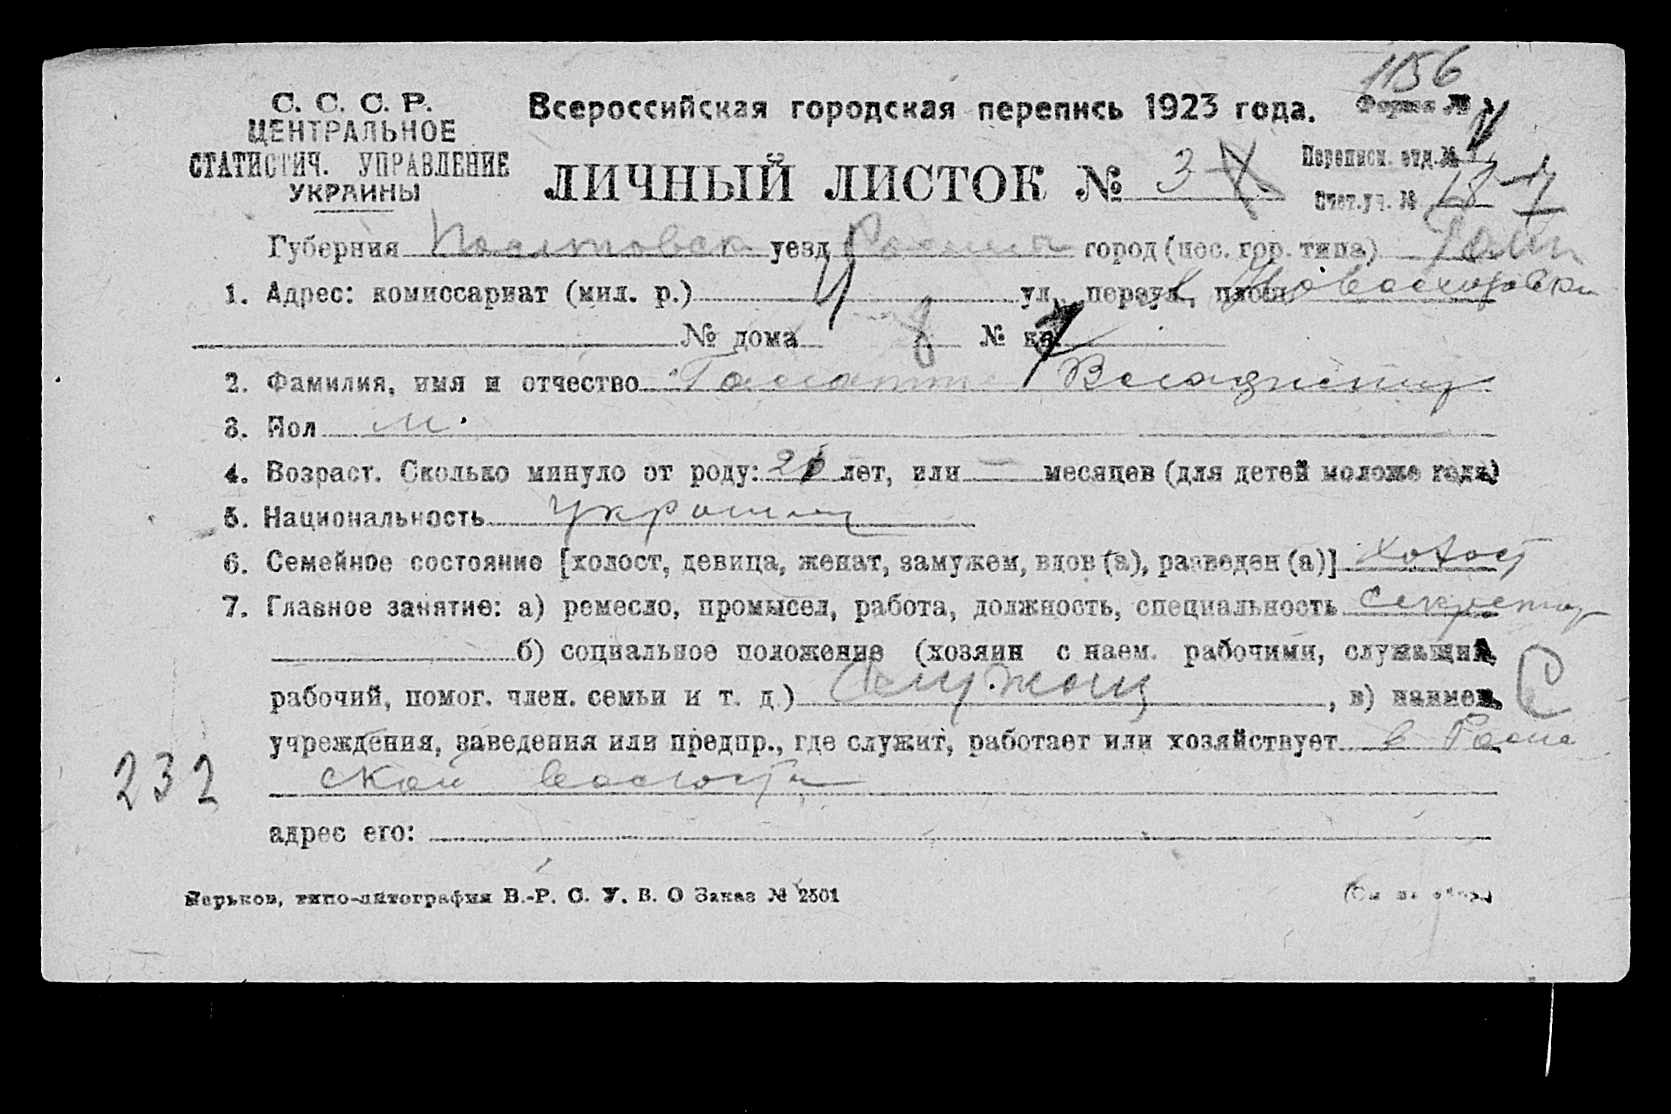 1156
С. С. С. Р.
ЦЕНТРАЛЬНОЕ
СТАТИСТИЧ. УПРАВЛЕНИЕ
УКРАИНЫ
Всероссийская городская перепись 1923 года.
Форма №
ЛИЧНЫЙ ЛИСТОК № 3
Переписн. отд. №
Счет. уч. № 18
Губерния Полтовск уезд город (пос. гор. типа)
1. Адрес: комиссариат (мил. р.) ул., переул., площ.
№ дома 8 № кв.
2. Фамилия, имя и отчество Владимир
3. Пол м.
4. Возраст. Сколько минуло от роду: лет, или — месяцев (для детей моложе года)
5. Национальность украинец
6. Семейное состояние [холост, девица, женат, замужем, вдов (а), разведен (а)] холост
7. Главное занятие: а) ремесло, промысел, работа, должность, специальность секретар
б) социальное положение (хозяин с наем. рабочими, служащий,
рабочий, помог. член. семьи и т. д.) Служащ, в) наимен. С
учреждения, заведения или предпр., где служит, работает или хозяйствует в
232 ской волости
адрес его:
Харьков, типо-литография В.-Р. С. У. В. О Заказ № 2501
(См на обор.)